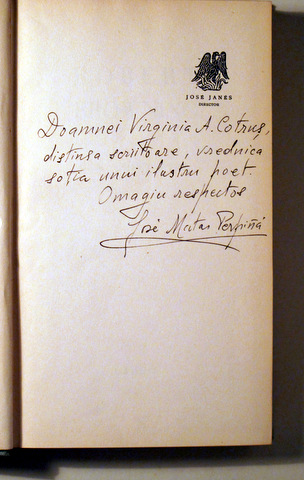 JOSÉ JANÉS
DIRECTOR
Doamnei Virginia A. Cotruș,
distinsa scriitoare, vrednica
soția unui ilustru poet.
Omagiu respectos
José Matas Perpiñá